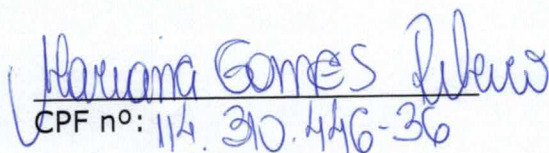 Mariana Gomes Ribeiro
CPF nº: 114.310.446-36